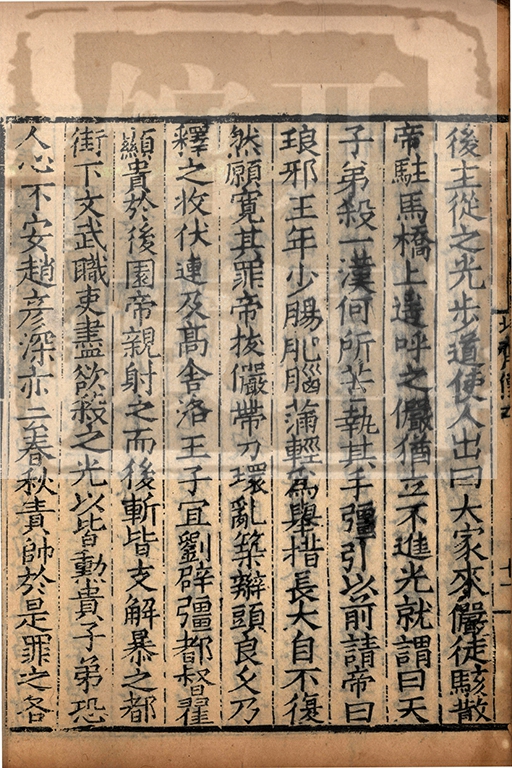 後主從之光步道使人出曰大家來儼徒駭散
帝駐馬橋上遥呼之儼猶立不進光就謂曰天
子弟殺一漢何所苦執其手彊引以前請帝曰
琅邪王年少腸肥腦滿輕爲舉措長大自不復
然願寛其罪帝拔儼帶刀環亂築辮頭良乆乃
釋之收伏連及髙舍洛王子宜劉辟彊都督翟
顯貴於後園帝親射之而後斬皆支解暴之都
街下文武職吏盡欲殺之光以皆勳貴子弟恐
人心不安趙彦深亦云春秋責帥於是罪之各